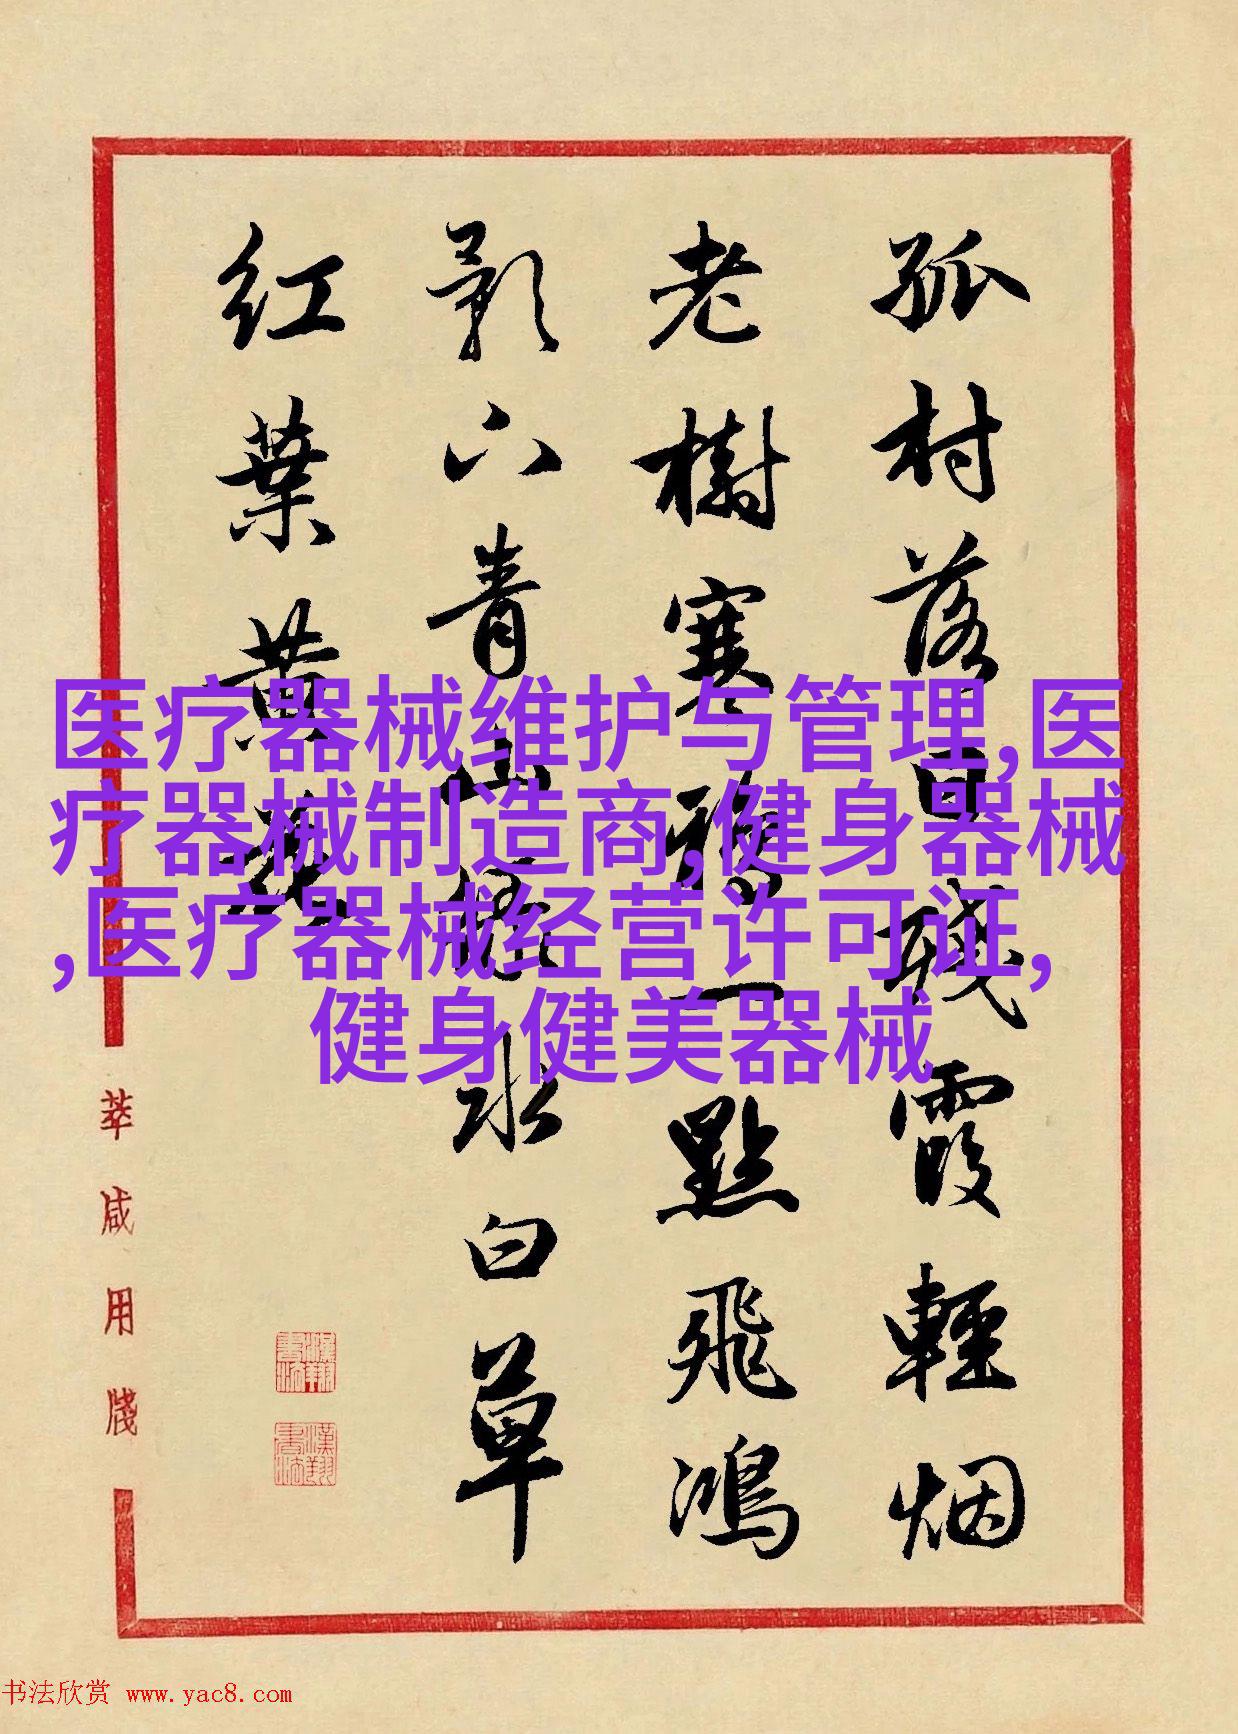 孤村落日残霞輕烟
老樹寒鴉一點飛鴻
影下青山绿水白草
红葉黄花
医疗器械维护与管理,医
疗器械制造商,健身器械
,医疗器械经营许可证,
健身健美器械
萃咸用牋
书法欣赏 www.yac8.com